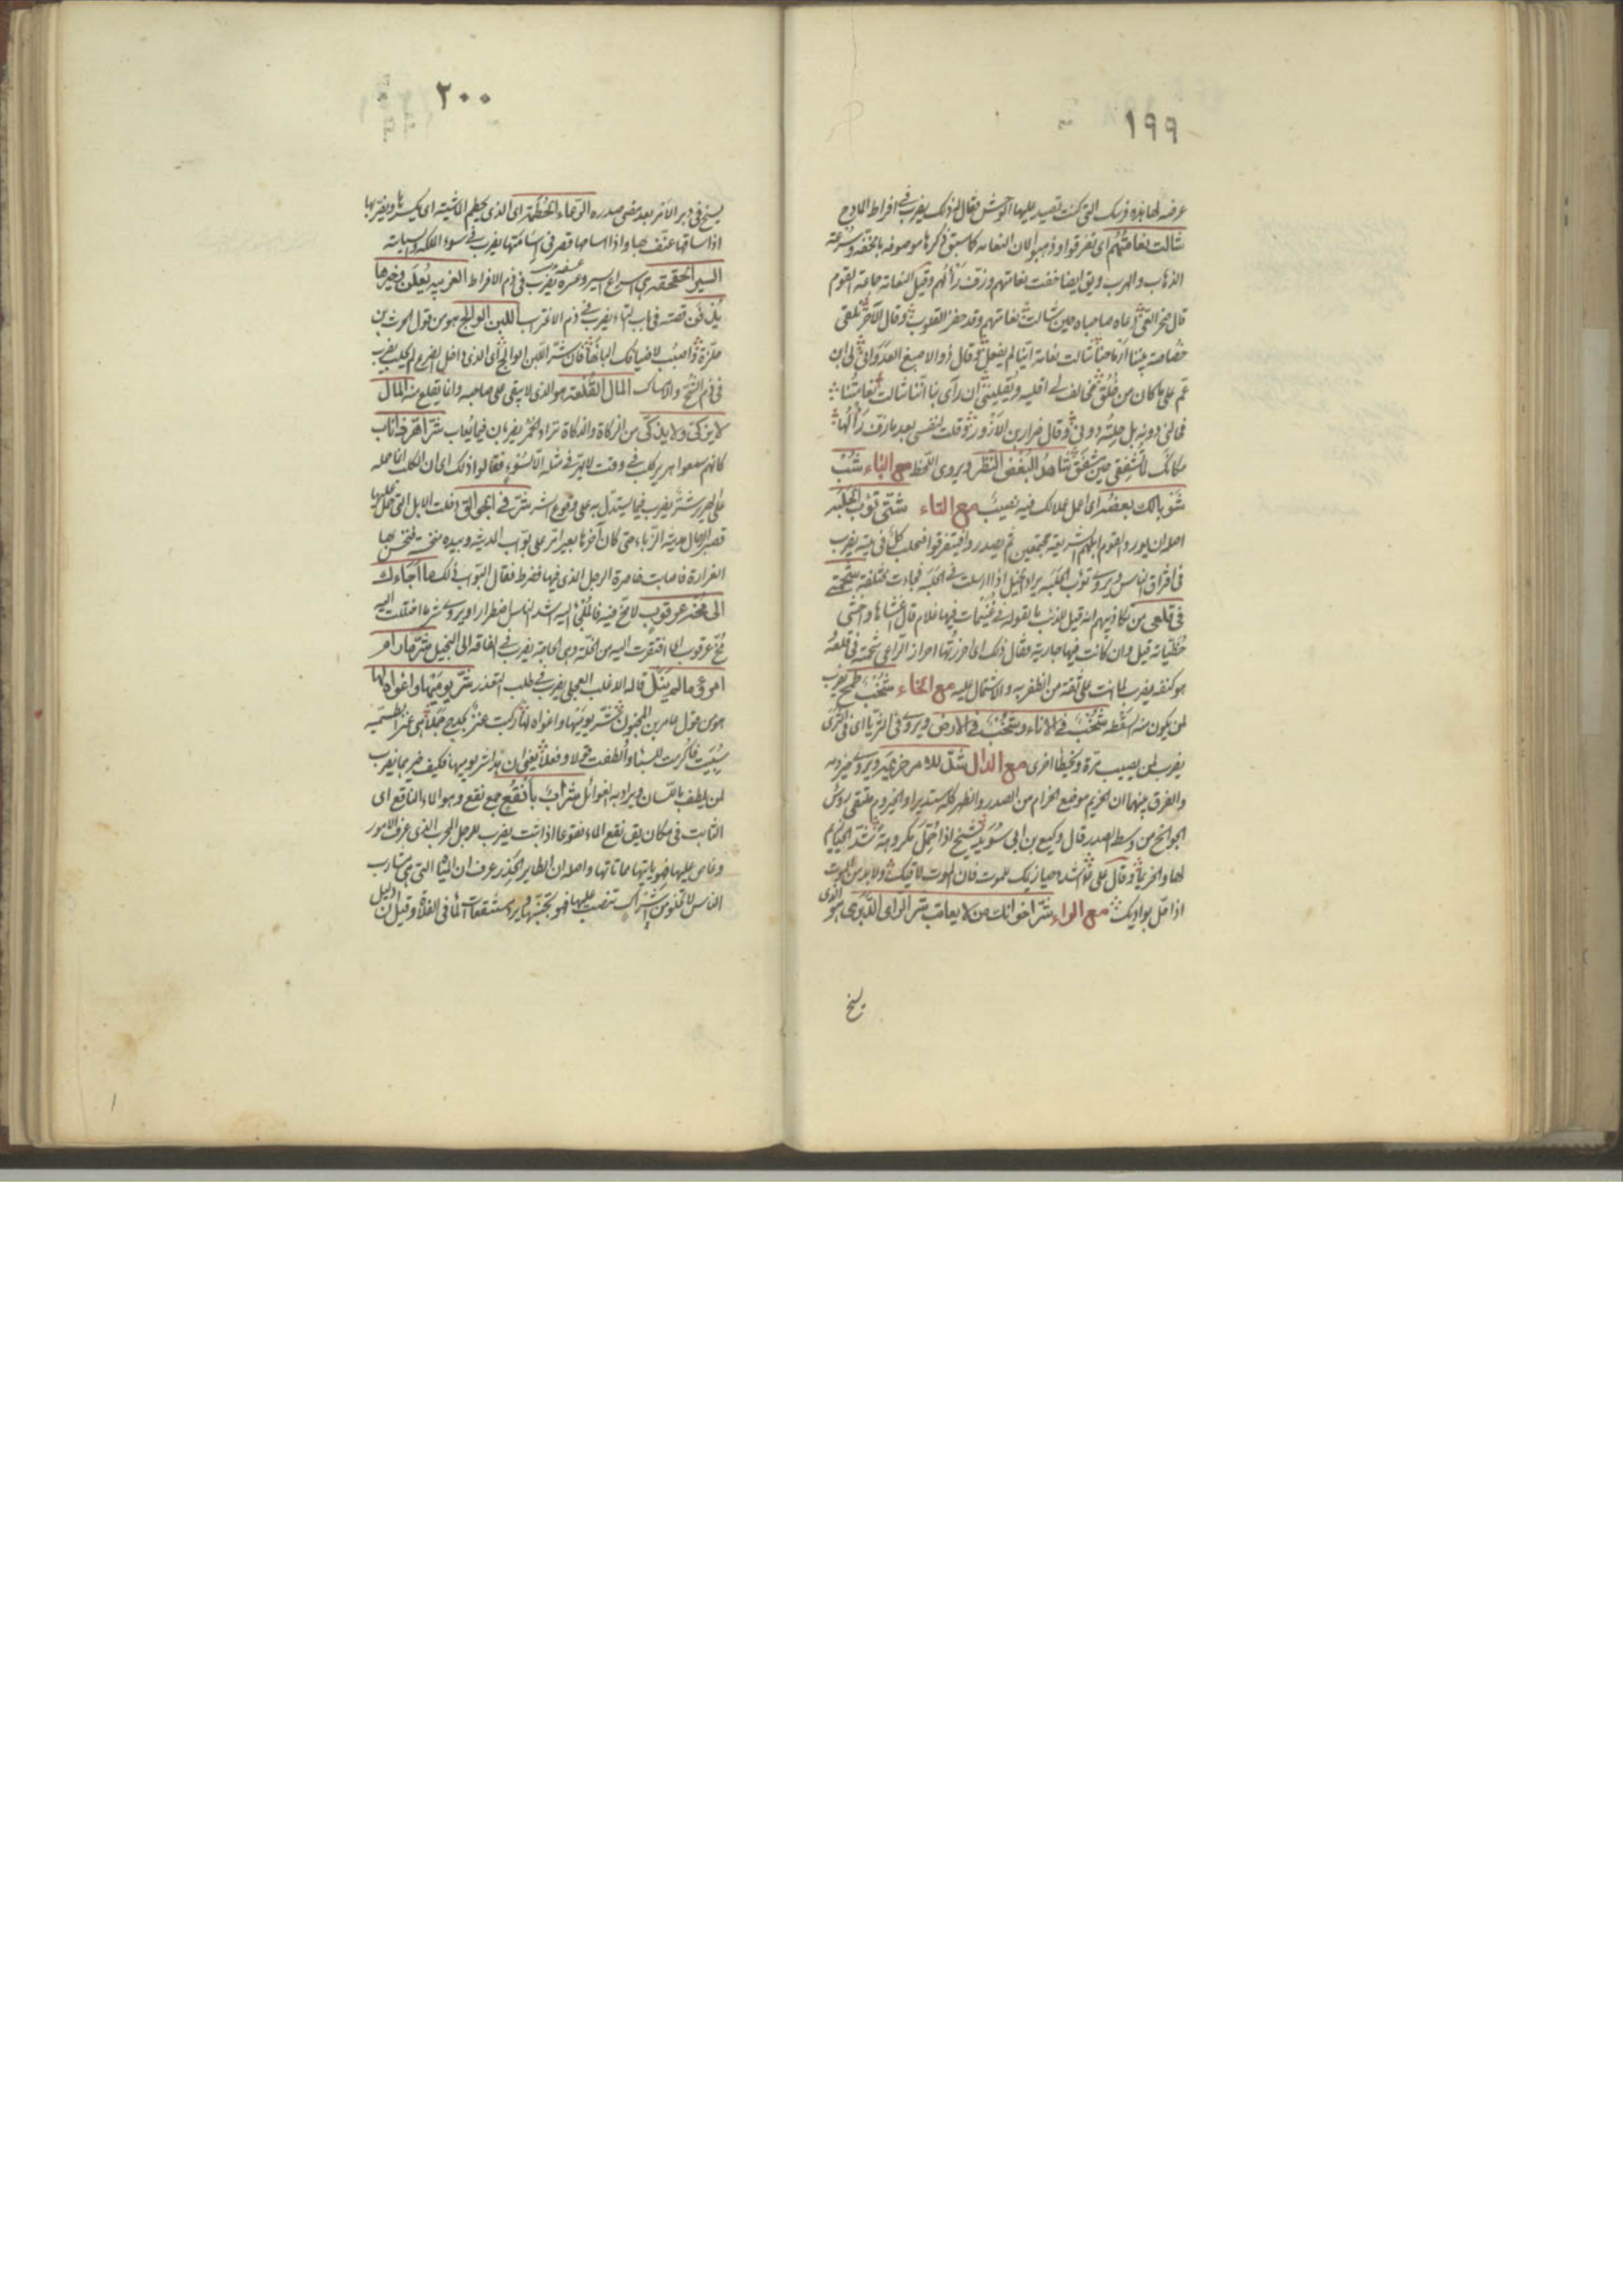 ١٩٩
عرضه لها بذه فرسك التى كنت تصيد عليها الوحش فقال لذلك يضرب فى افراط المادح
شالت نعامتهم اى تفرقوا وذهبوا لان النعامة كما سبق ذكرها موصوفة بالخفة وسرعة
الذهاب والهرب ويق ايضا خفت نعامتهم وزف رألهم وقيل النعامة جماعة القوم
قال صخر الغى دعاه صاحباه حين شالت نعامتهم وقد حفز القلوب وقال الآخر تلقى
خصاصة بيننا ارماحنا شالت نعامة اينا لم يفعل وقال ذو الاصبع العدوانى لى ابن
عم على ما كان من خلق مخالف لى اقليه ويقلينى ان رأى بنا اننا شالت نعامتنا
فخالنى دونه بل خلته دونى وقال ضرار بن الازور وقلت لنفسى بعد ما زف رألها
مكانك لما تشفقى حين مشفق شاهد البغض النظر ويروى اللحظ مع الباء شب
شوبا لك بعضه اى اعمل عملا لك فيه نصيب مع التاء شتى تؤب الحلبة
اصله ان يورد القوم ابلهم الشريعة مجتمعين ثم يصدروا فيتفرقوا فيحلب كل فى بيته يضرب
فى افتراق الناس ويروى تؤب الحلبة يراد الخيل اذا ارسلت فى الحلبة فجاءت مختلفة شحمتى
فى قلعى من تكاذيبهم انه قيل للذئب ما تقول فى غنيمات فيها غلام قال اخشاها واخشى
حظياته قيل وان كانت فيها جارية فقال ذلك اى احرزتها احراز الراعى شحمته فى قلعه
هو كنفه يضرب لما انت على ثقة من الظفر به والاشتمال عليه مع الخاء شخب طمح يضرب
لمن يكون منه السقطة شخب فى الاناء وشخب فى الارض ويروى فى الثريا اى فى الثرى
يضرب لمن يصيب مرة ويخطأ اخرى مع الدال شد للامر حزيمه ويروى حيزومه
والفرق بينهما ان الحزيم موضع الحزام من الصدر والظهر كله مستديرا والحيزوم ملتقى رؤس
الجوانح من وسط الصدر قال وكيع بن ابى سويد شيخ اذا حمل مكروهة شد الحيازيم
لها والحزيما وقال على اشدد حيازيمك للموت فان الموت لاقيك ولا بد من الموت
اذا حل بواديك مع الراء شر اخوانك من لا يعاتب شر الراى الدبرى هو الذى
يسنح
٢٠٠
يسنح فى دبر الامر بعد مضى صدره الرعاء الحطمة اى الذى يحطم الماشية اى يكسرها ويضربها
اذا ساقها عنف بها واذا اسامها قصر فى اسامتها يضرب فى سوء الملكة والسياسة
السير الحقحقة هى اسراع السير وعسره يضرب فى ذم الافراط الغريبة يعلن وخيرها
يدفن قصته فى باب التاء يضرب فى ذم الاغتراب اللبن الوالج هو من قول الحرث بن
حلزة واصبب لاضيافك البانها فان شر اللبن الوالج اى الذى داخل الضرع لم يحلب يضرب
فى ذم الشح والامساك المال القلعة هو الذى لا يبقى على صاحبه وانما يقلع منه المال
لا يزكى ولا يذكى من الزكاة والذكاة تراد الحمر يضربان فيما يعاب شر اهر ذا ناب
كانهم سمعوا هرير كلب فى وقت لا يهر فى مثله الا لسوء فقالوا ذلك اى ان الكلب انما حمله
على الهرير شر يضرب فيما يستدل به على وقوع الشر شر فى الجوالق دخلت الابل التى حمل عليها
قصير الرجال مدينة الزباء حتى كان آخرها بعيرا مر على بواب المدينة وبيده منخسة فنخس بها
الغرارة فاصابت خاصرة الرجل الذى فيها فضرط فقال البواب ذلك ما اجاءك
الى مخة عرقوب لا مخ فيه فالملتجئ اليه اشد الناس اضطرارا ويروى شر ما اختلت اليه
مخ عرقوب اى افتقرت اليه من الخلة وهى الحاجة يضرب فى الفاقة الى البخيل شر ما رام
امرؤ ما لم ينل قاله الاغلب العجلى يضرب فى طلب المتعذر شر يوميها واغواه لها
هو من قول عامر بن المجنون شر يوميها واغواه لها ركبت عنز بحدج جملا هى عنز الطسمية
سبيت فاكرمت للسبا والطفت قولا وفعلا يعنى ان هذا شر يوميها فكيف خيرهما يضرب
لمن يلطف باللسان ويراد به الغوائل شراب بانقع جمع نقع وهو الماء الناقع اى
الثابت فى مكان يق نقع الماء نقوعا اذا ثبت يضرب للرجل المجرب الذى عرف الامور
وغاص عليها فهو ياتيها من مأتاتها واصله ان الطاير الحذر عرف ان المياه التى هى مشارب
الناس لا تخلو من شرك تنصب عليها فهو يجتنبها ويرد مستنقعات الماء فى الفلاة وقيل ان الدليل